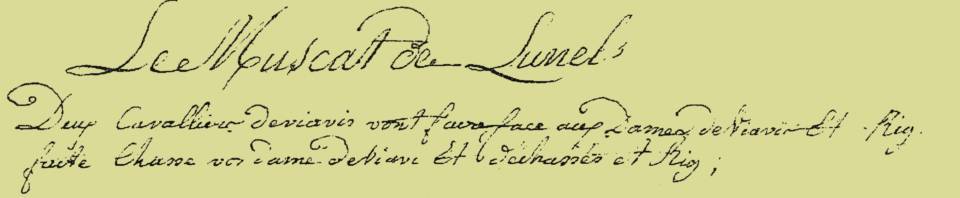 Le Muscat de Lunel
Deux Cavalliers deviavis vont faire face aux Dames deviavis Et Rig.
faite Chasse vos dame deviavi Et déchassés et Rig ;